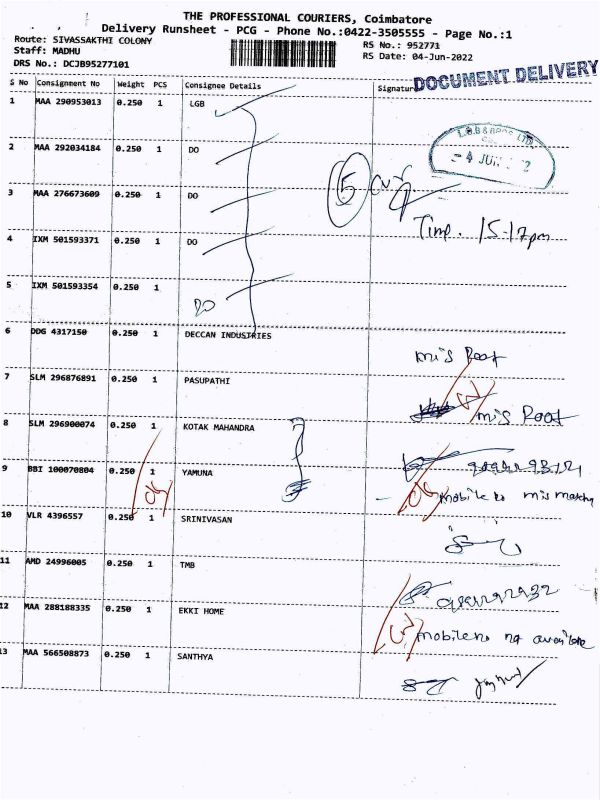 THE PROFESSIONAL COURIERS, Coimbatore
Delivery Runsheet - PCG - Phone No.:0422-3505555 - Page No.:1
Route: SIVASSAKTHI COLONY
Staff: MADHU
DRS No.: DCJB95277101
RS No.: 952771
RS Date: 04-Jun-2022
DOCUMENT DELIVERY
S No Consignment No Weight PCS Consignee Details Signatur
1 MAA 290953013 0.250 1 LGB
L.G.B & BROS LTD
2 MAA 292034184 0.250 1 DO
- 4 JUN 2
3 MAA 276673609 0.250 1 DO
5
Time. 15-17pm
4 IXM 501593371 0.250 1 DO
5 IXM 501593354 0.250 1
DO
6 DDG 4317150 0.250 1 DECCAN INDUSTRIES
mis Root
7 SLM 296876891 0.250 1 PASUPATHI
mis Root
8 SLM 296900074 0.250 1 KOTAK MAHANDRA
9 BBI 100070804 0.250 1 YAMUNA
mobile no mis match
10 VLR 4396557 0.250 1 SRINIVASAN
11 AMD 24996005 0.250 1 TMB
12 MAA 288188335 0.250 1 EKKI HOME
mobile no not available
13 MAA 566508873 0.250 1 SANTHYA